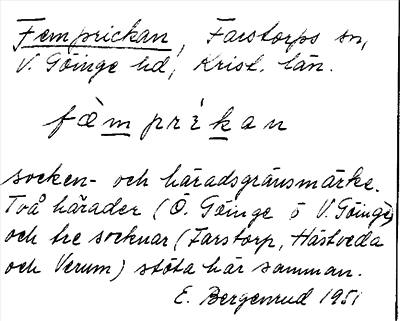 Femprickan, Farstorps sn,
V. Göinge hd, Krist. län.
fæ̀m príkan
socken- och häradsgränsmärke.
Två härader (Ö. Göinge o V. Göinge)
och tre socknar (Farstorp, Hästveda
och Verum) stöta här samman.
E. Bergenrud 1951